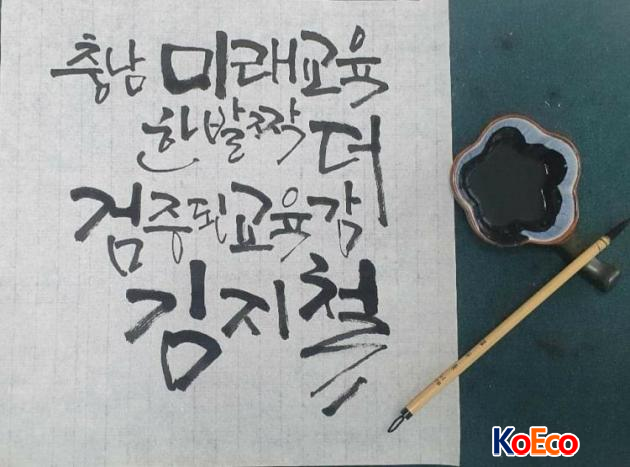 충남 미래교육
한발짝 더
검증된 교육감
김지철
KoEco